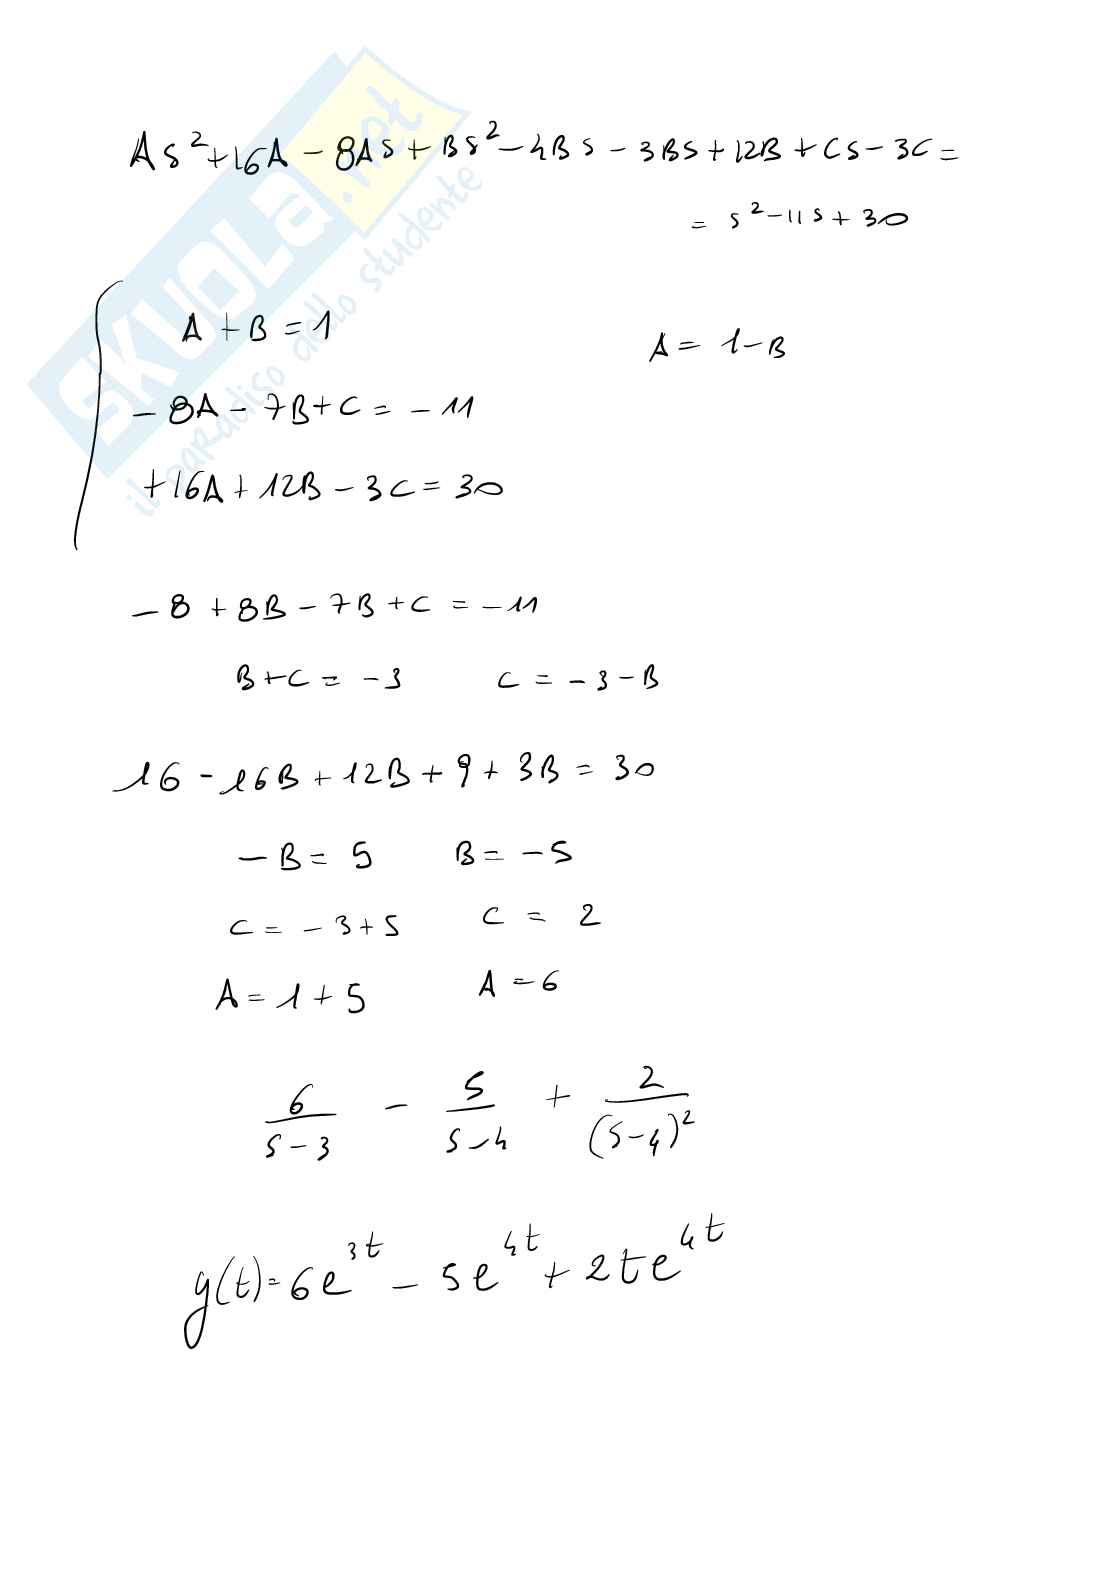 SKUOLA.net
il paradiso dello studente
As² + 16A - 8As + Bs² - 4Bs - 3Bs + 12B + Cs - 3C =
= s² - 11s + 30
A + B = 1 A = 1 - B
- 8A - 7B + C = - 11
+16A + 12B - 3C = 30
- 8 + 8B - 7B + C = - 11
B + C = - 3 C = - 3 - B
16 - 16B + 12B + 9 + 3B = 30
- B = 5 B = - 5
C = - 3 + 5 C = 2
A = 1 + 5 A = 6
6/(s - 3) - 5/(s - 4) + 2/(s - 4)²
y(t) = 6e^{3t} - 5e^{4t} + 2te^{4t}